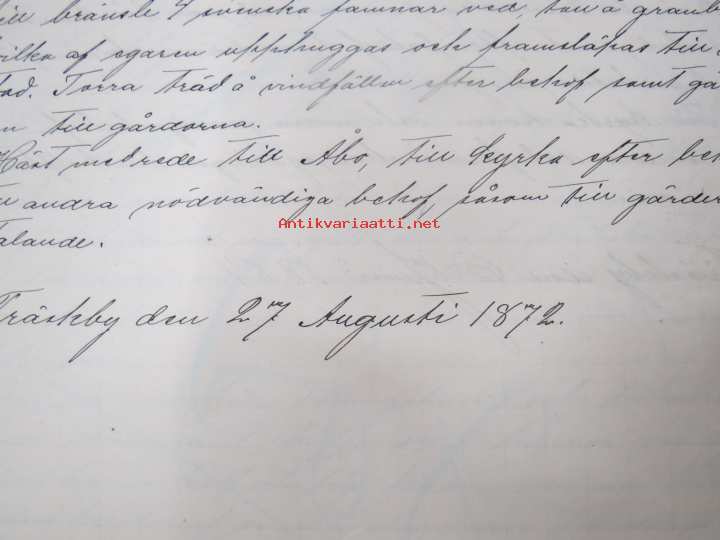 till bränsle 4 svenska famnar ved, tall å granb
vilka af egaren upphuggas och framsläpas till
tad. Torra träd å vindfällen efter behof samt gä
n till gårdorna.
Häst med rede till Åbo, till kyrka efter beh
andra nödvändiga behof, såsom till gärder
talande.
Antikvariaatti.net
Träskby den 27 Augusti 1872.